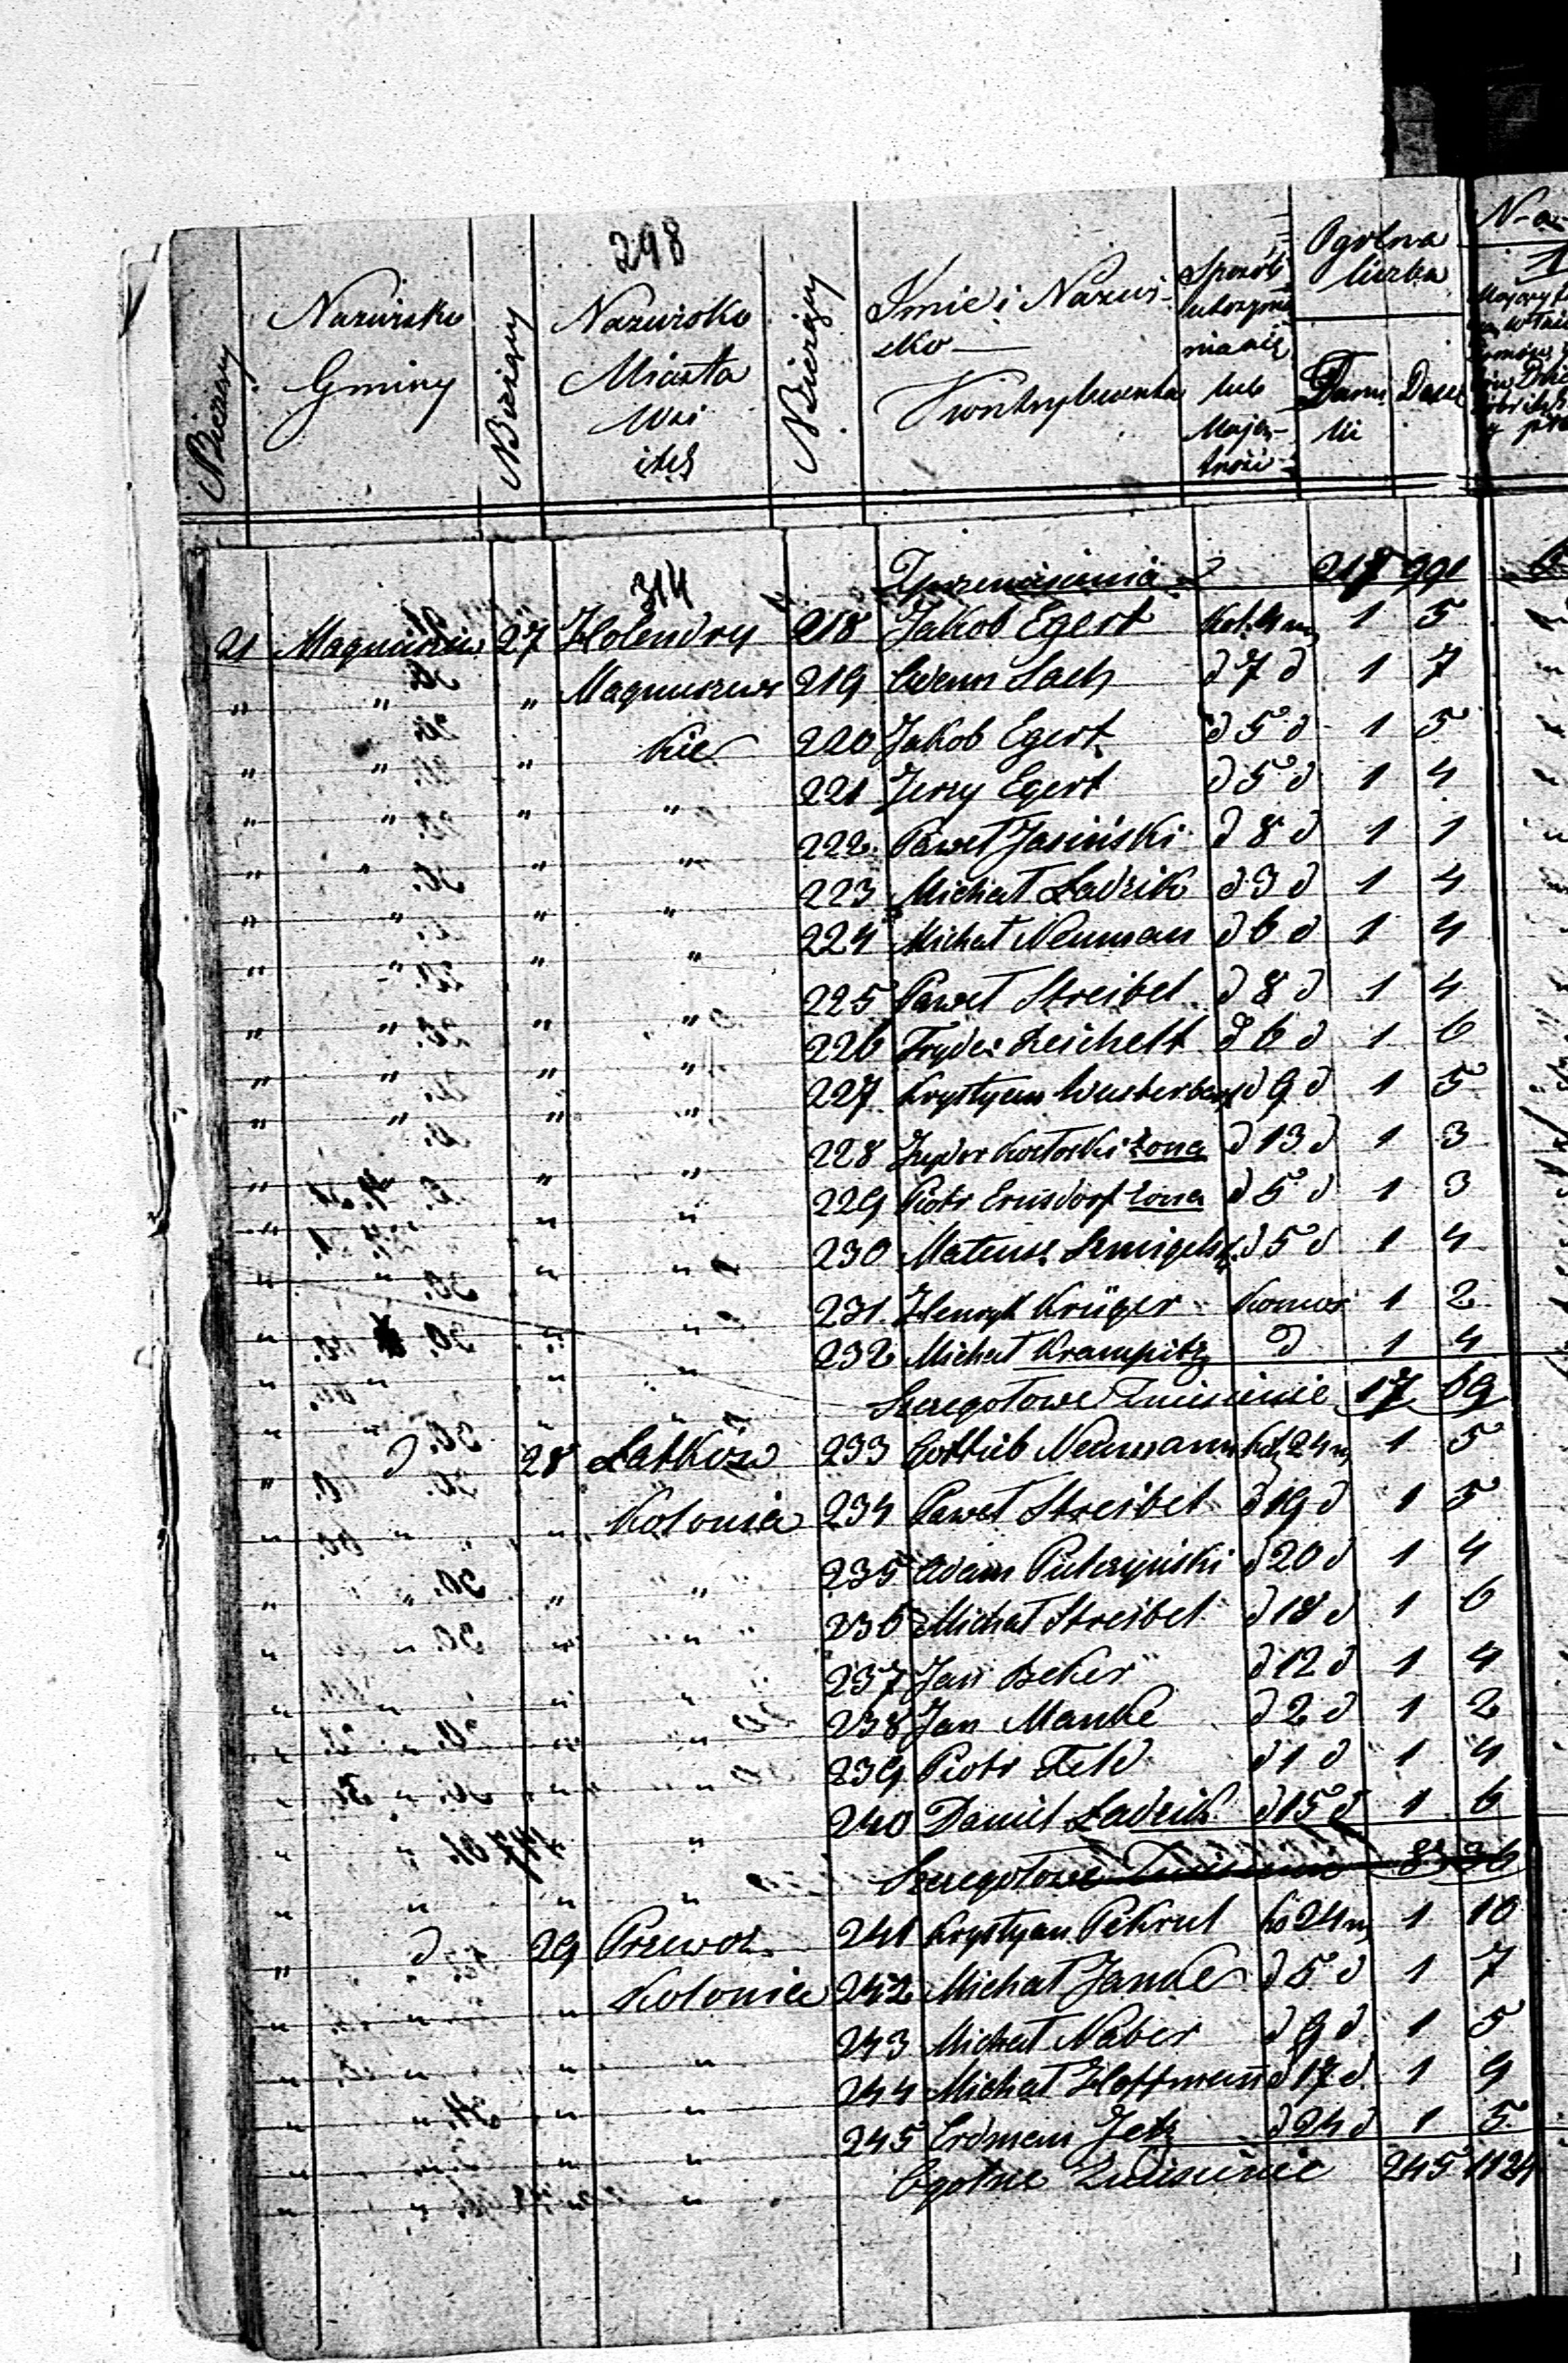 298
N Bieżący
Nazwisko Gminy
N Bieżący
Nazwisko Miasta Wsi itd
N Bieżący
Imie i Nazwi-
sko
Kontrybuenta
Sposób
lub
Majęt-
ności
Ogólna
liczba
Dusz
314
Z przeniesienia 217 991
21 Magnuszew 27 Holendry 218 Jakob Egert Kol. 4 m 1 5
" " " Magnuszews 219 Adam Lach d 7 d 1 7
" " " kie 220 Jakob Egert d 5 d 1 5
" " " " 221 Jerzy Egert d 5 d 1 4
" " " " 222. Paweł Jasiński d 8 d 1 1
" " " " 223 Michał Ladzik d 3 d 1 4
" " " " 224 Michał Neuman d 6 d 1 4
" " " " 225 Paweł Streibel d 8 d 1 4
" " " " 226 Fryder Reichelt d 6 d 1 6
" " " " 227 Krystyan Wusterberg d 9 d 1 5
" " " " 228 żona d 13 d 1 3
" " " " 229 Piotr Ernsdorf żona d 5 d 1 3
" " " " 230 Mateusz d 5 d 1 4
" " " " 231. Henryk Krüger Komor 1 2
" " " " 232 Michał Krampitz d 1 4
Szczegołowe Zniesienie 17 69
" d 28 Latków 233 Gottlieb Neumann Kol. 24 m 1 5
" " " Kolonia 234 Paweł Streibel d 19 d 1 5
" " " " 235 Adam d 20 d 1 4
" " " " 236 Michał Streibel d 18 d 1 6
" " " " 237 Jan Beker d 12 d 1 4
" " " " 238 Jan Manke d 2 d 1 2
" " " " 239 Piotr Feld d 1 d 1 4
" " " " 240 Daniel Ladzik d 15 d 1 6
Szczegołowe Zniesienie 8 36
" d 29 Przewoz 241 Krystyan Pekrul Ko 24 m 1 10
" " " Kolonia 242 Michał Janke d 5 d 1 7
" " " " 243 Michał Naber d 9 d 1 5
" " " " 244 Michał Hoffmann d 17 d 1 9
" " " " 245 Erdman Jetz d 24 d 1 5
Ogólne Zniesienie 245 1124